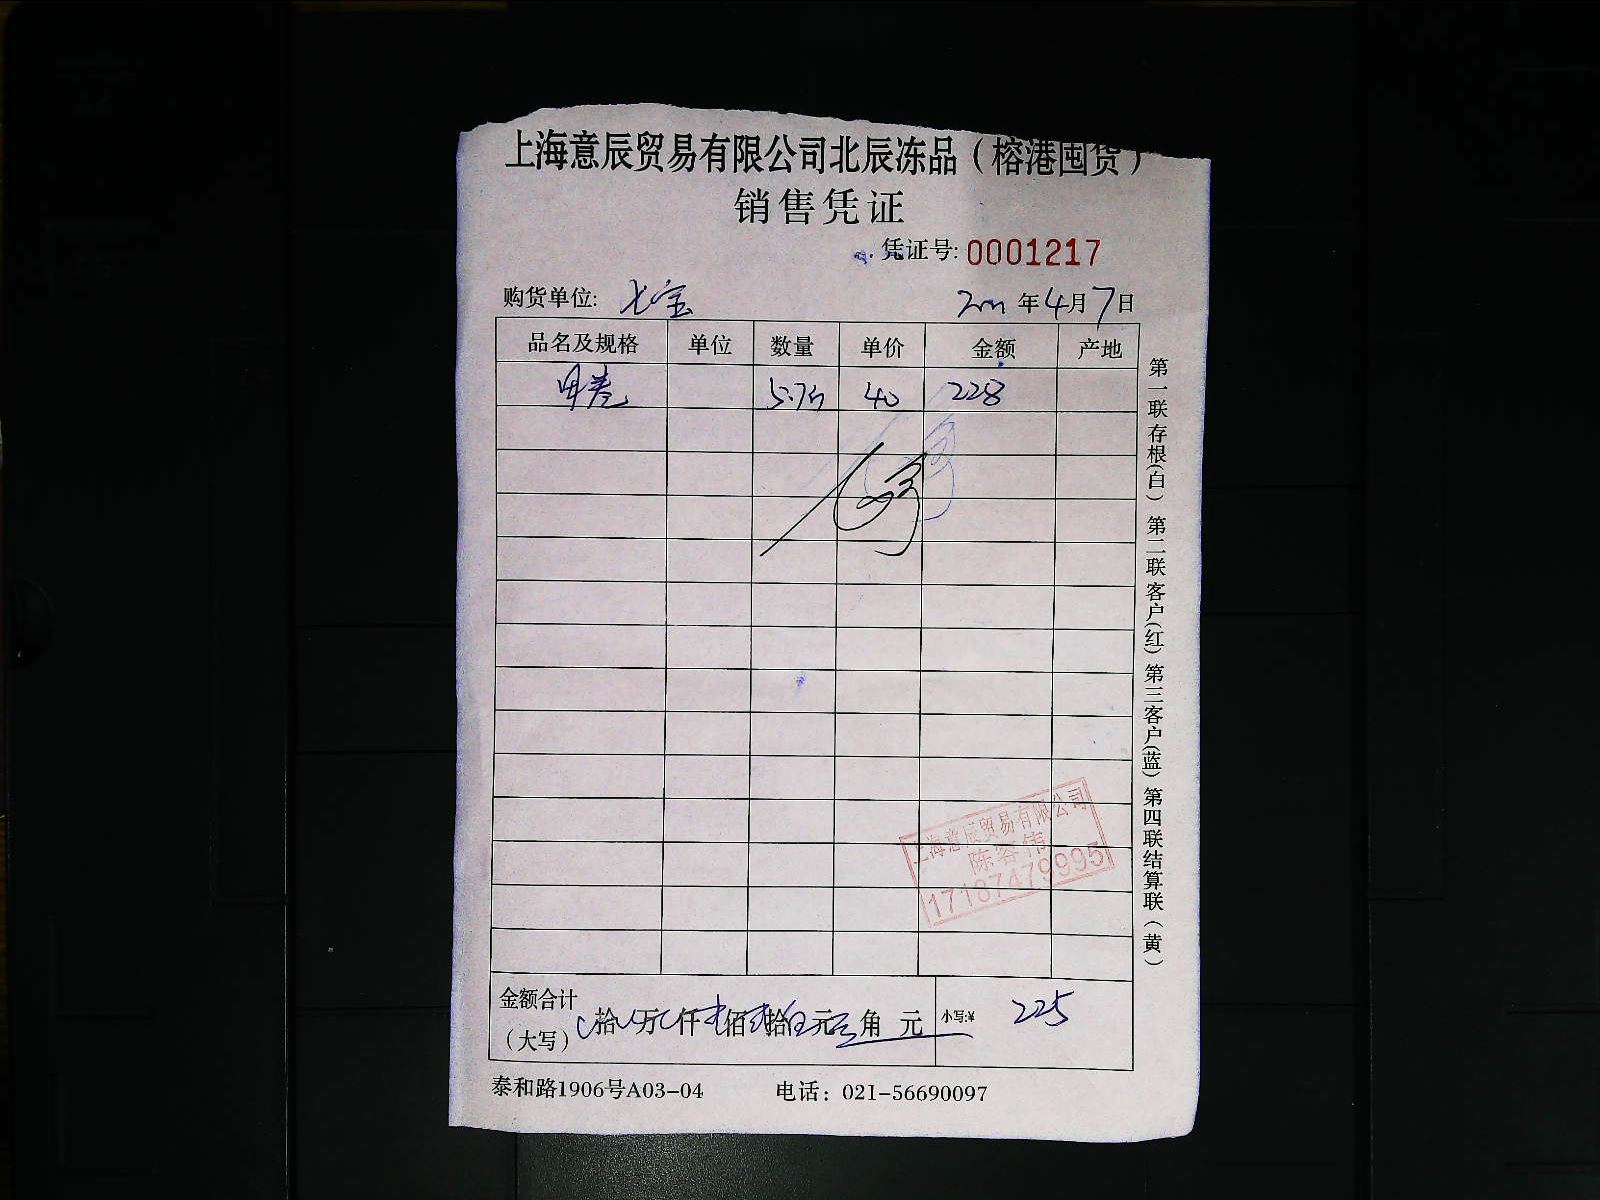 上海意辰贸易有限公司北辰冻品（榕港囤货）
销售凭证
凭证号: 0001217
购货单位: 七宝
年 4 月 7 日
品名及规格 单位 数量 单价 金额 产地
40 228
上海意辰贸易有限公司
陈容伟
17187479995
金额合计（大写） 拾 万 仟 佰 拾 元 角 元 小写:¥ 225
泰和路1906号A03-04 电话：021-56690097
第一联存根(白) 第二联客户(红) 第三客户(蓝) 第四联结算联(黄)